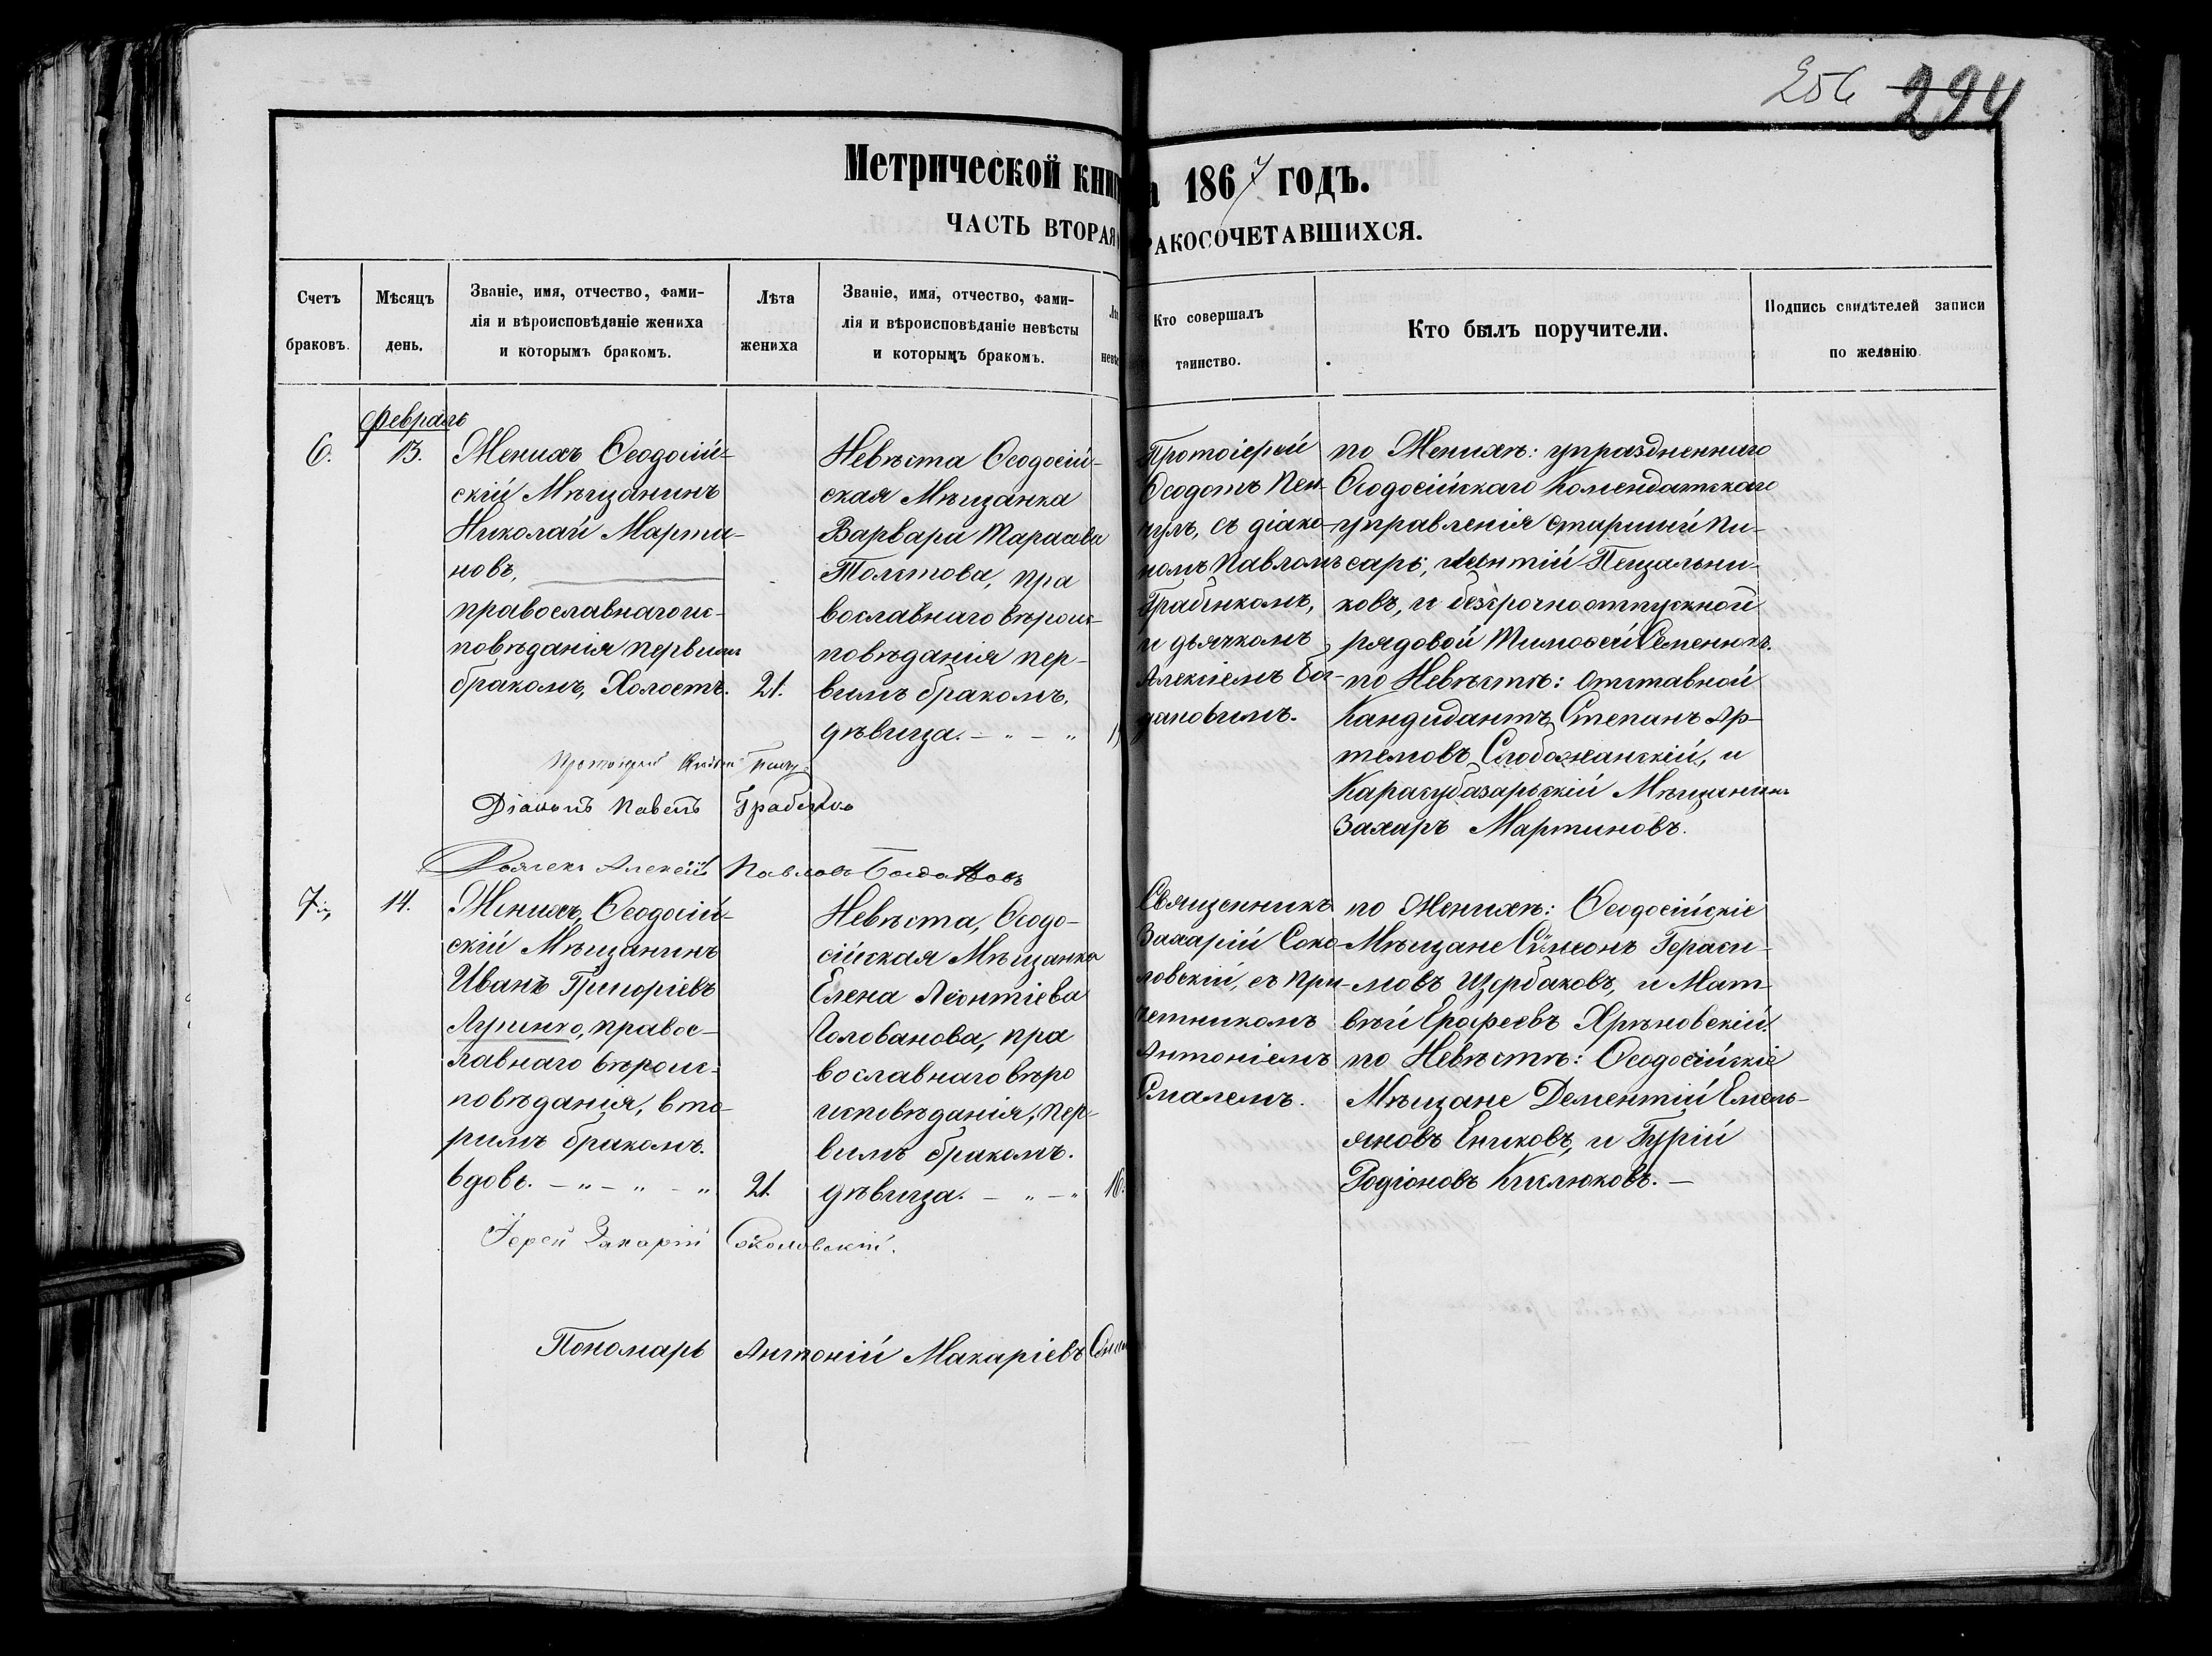 256 294
Метрической книг
а 1867 годъ.
ЧАСТЬ ВТОРАЯ
РАКОСОЧЕТАВШИХСЯ.
Счетъ
браковъ.
Мѣсяцъ
день.
Званіе, имя, отчество, фами-
лія и вѣроисповѣданіе жениха
и которымъ бракомъ.
Лѣта
жениха
Званіе, имя, отчество, фами-
лія и вѣроисповѣданіе невѣсты
и которымъ бракомъ.
Кто совершалъ
таинство.
Кто былъ поручители.
Подпись свидѣтелей записи
по желанію.
6.
Февраль
13.
Женихъ Ѳеодосій-
скій Мѣщанинъ
Николай Марти-
новъ,
православнаго ис-
повѣданія первимъ
бракомъ, Холостъ.
21.
Невѣста Ѳеодосій-
ская Мѣщанка
Варвара Тарасова
Толстова, пра
вославнаго вѣроис-
повѣданія пер-
вимъ бракомъ,
дѣвица. - " - "
Протоіерей
Ѳеодотъ Пен-
чулъ, съ діако-
номъ Павломъ
Грабенкомъ,
и дьячкомъ
Алексіемъ Бог-
дановимъ.
по Женихѣ: упраздненнаго
Ѳеодосійскаго Комендатскаго
управленія старшій пи-
сарь, Пещальни-
ковъ, и безсрочноотпускной
рядовой Тимоѳей Семенюкъ.
по Невѣстѣ: отставной
Кандидантъ Степанъ Ар-
темовъ Слобожанскій, и
Карасубазарьскій Мѣщанинъ
Захаръ Мартиновъ.
Протоіерей
Діаконъ Павелъ Грабенко
Дьячекъ Алексій Павловъ Богдановъ
7.
14.
Женихъ, Ѳеодосій-
скій Мѣщанинъ
Иванъ Григоріевъ
Лупинко, правос-
лавнаго вѣроис-
повѣданія, вто-
римъ бракомъ.
вдовъ. - " - " - "
21.
Невѣста, Ѳеодо-
сійская Мѣщанка
Елена Леонтіева
Голованова, пра
вославнаго вѣро
исповѣданія, пер-
вимъ бракомъ.
дѣвица. - " - "
16.
Священникъ
Захарій Соко-
ловскій, съ при-
четникомъ
Антоніемъ
Смалемъ.
по Женихѣ: Ѳеодосійскіе
Мѣщане Сѵмеонъ Гераси-
мовъ Щербаковъ, и Мат-
вѣй Ерофеевъ Хрѣновскій.
по Невѣстѣ: Ѳеодосійскіе
Мѣщане Дементій Емель-
яновъ Ениковъ, и Гурій
Родіоновъ Кислюковъ. -
Іерей Захарій Соколовскій.
Пономарь Антоній Макаріевъ